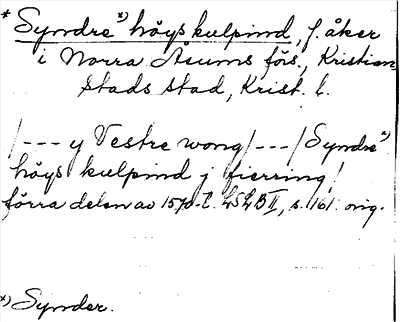 * Syndre *) höys kulpind, f. åker
i Norra Åsums förs., Kristian
stads stad, Krist. l.
/--- y Vestre wong/---/Syndre *)
höys kulpind j fierring/
förra delen av 1570-t. LSLB II, s. 161. orig.
*) Synder.